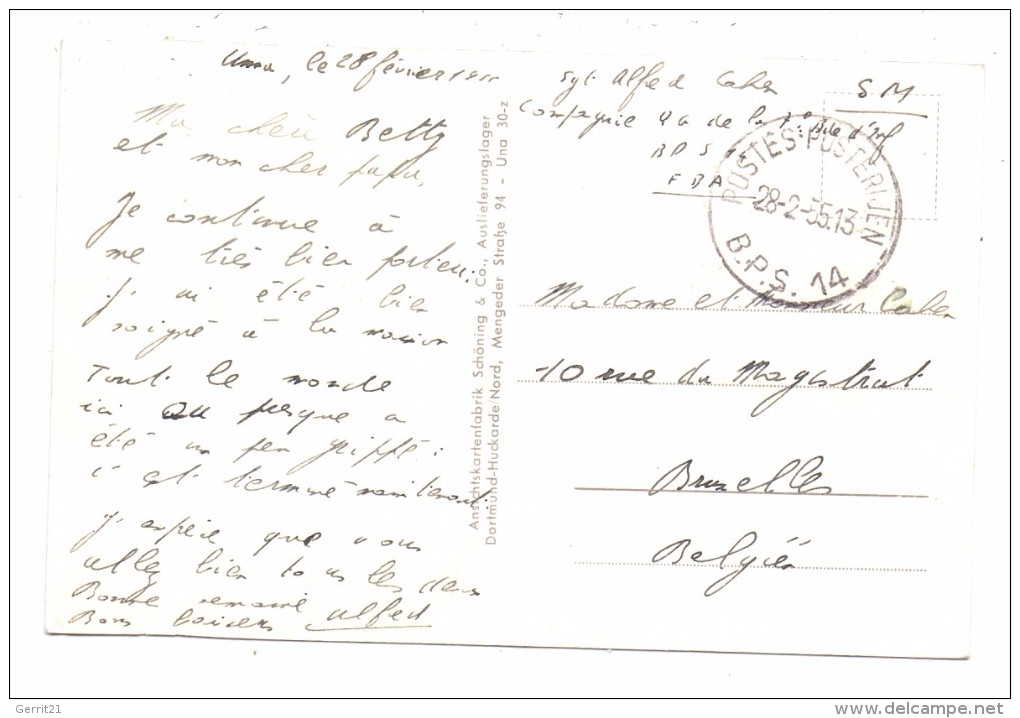 Unna, le 28 février 1955
Ma chère Betty
et mon cher papa,
Je continue à
me très bien porter.
J'ai été bien
soigné à la maison
Tout le monde
ici ou presque a
été un peu grippé :
c'est terminé maintenant.
J'espère que vous
allez bien tous les deux
Bonne semaine
Bons baisers Alfed
Ansichtskartenfabrik Schöning & Co., Auslieferungslager
Dortmund-Huckarde Nord, Mengeder Straße 94 - Una 30-z
Sgt Alfed Cahen
Compagnie QG de la Bde d'Inf
BPS
FBA
SM
POSTES-POSTERIJEN
28-2-55.13
B.P.S. 14
Madame et Monsieur Cahen
10 rue du Magistrat
Bruxelles
Belgien
Gerrit21